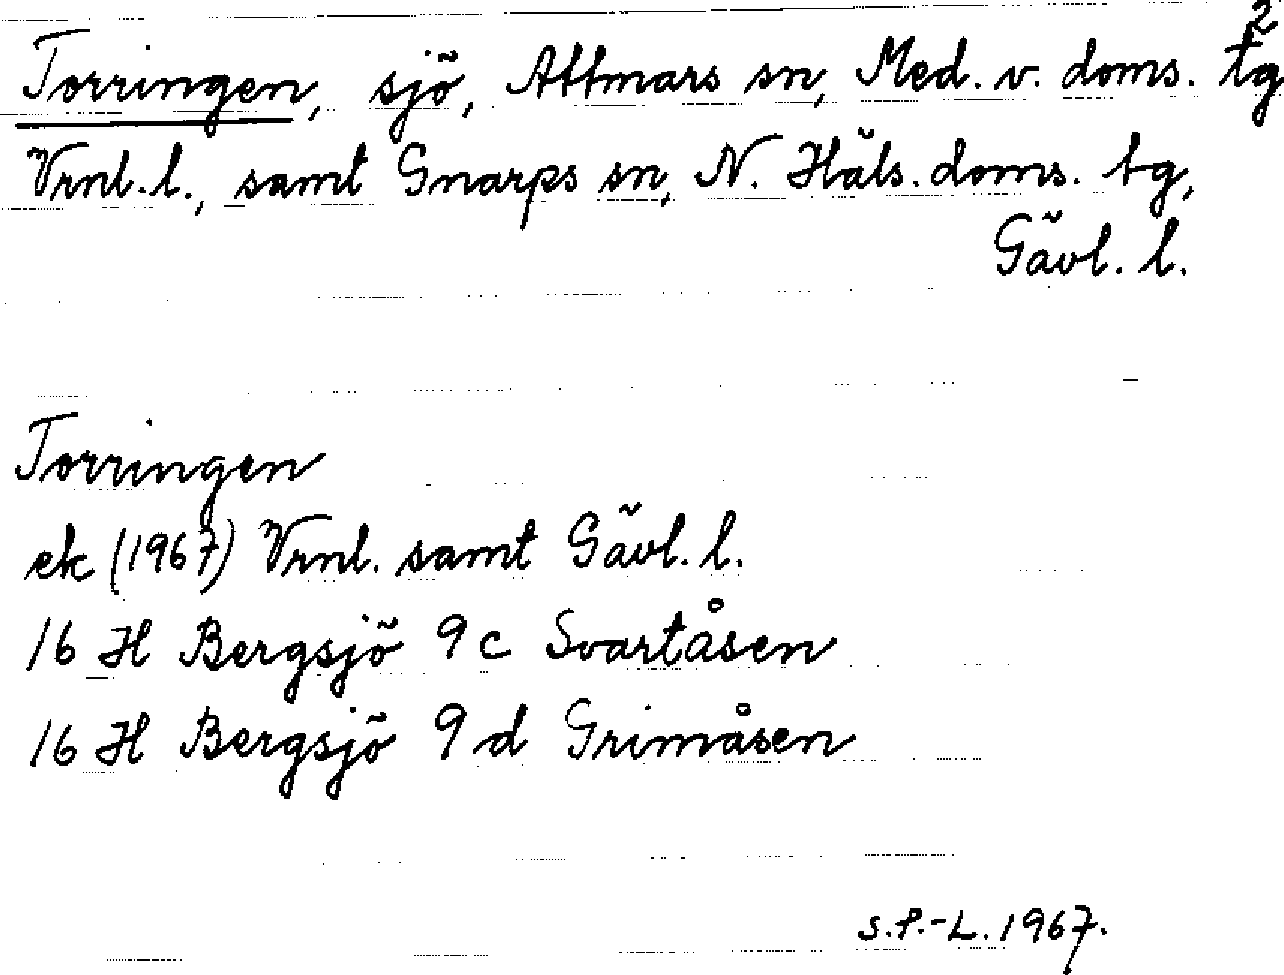 2
Torringen, sjö, Attmars sn, Med. v. doms. tg
Vrnl. l., samt Gnarps sn, N. Häls. doms. tg,
Gävl. l.
Torringen
ek (1967) Vrnl. samt Gävl. l.
16 H Bergsjö 9 c Svartåsen
16 H Bergsjö 9 d Grimåsen
S.P.-L. 1967.